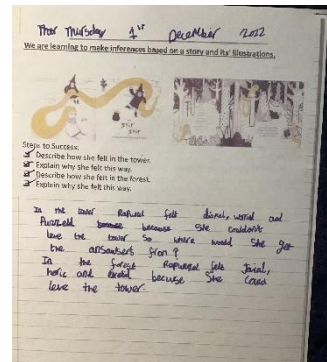 Thursday 1st December 2022
We are learning to make inferences based on a story and its' illustrations.
Steps to Success:
Describe how she felt in the tower.
Explain why she felt this way.
Describe how she felt in the forest.
Explain why she felt this way.
In the tower Rapunzel felt dismel, worried and
Puzzeld because she couldn't
leve the tower so where would she get
the from?
In the forest Rapunzel felt Jovial,
and becuse She Could
leve the tower.